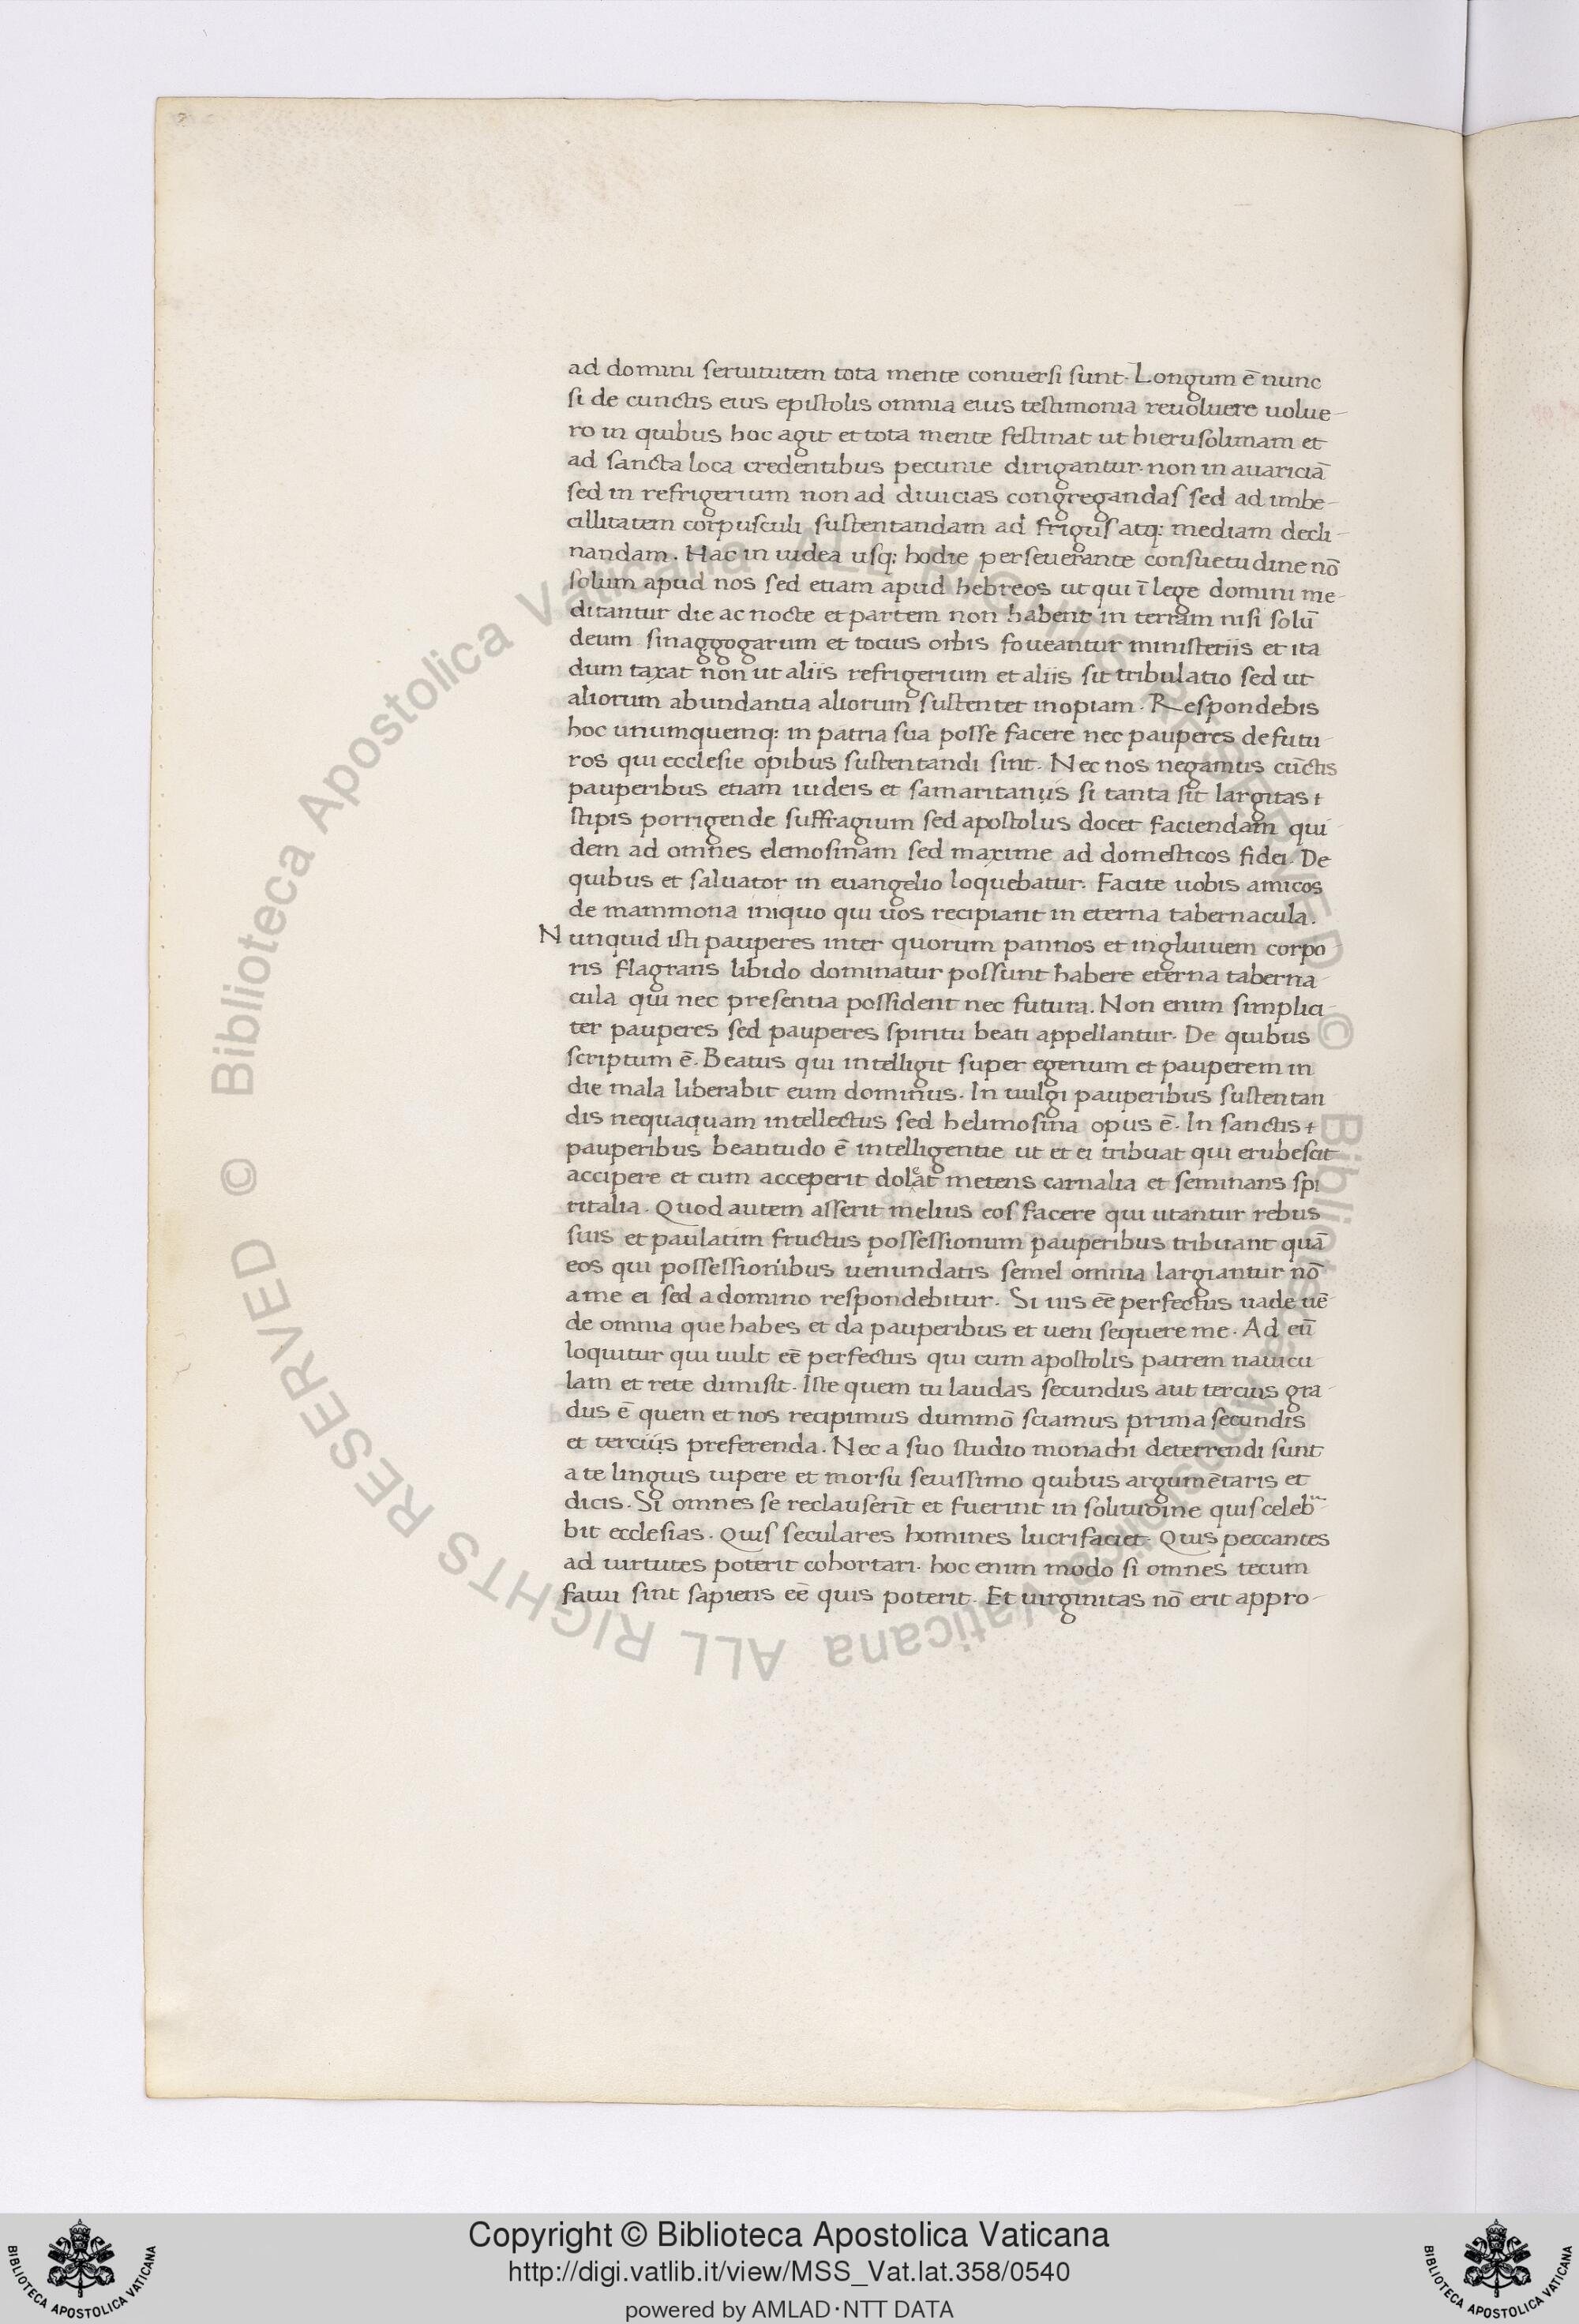 ad domini seruitutem tota mente conuersi sunt. Longum ē nunc
si de cunctis eius epistolis omnia eius testimonia reuoluere uolue-
ro in quibus hoc agit et tota mente festinat ut hierusolimam et
ad sancta loca credentibus pecunie dirigantur. non in auariciā
sed in refrigerium non ad diuicias congregandas sed ad imbe-
cillitatem corpusculi sustentandam ad frigus atq: mediam decli-
nandam. Hac in iudea usq: hodie perseuerante consuetudine nō
solum apud nos sed etiam apud hebreos ut qui ī lege domini me-
ditantur die ac nocte et partem non habent in terram nisi solū
deum sinaggogarum et tocius orbis foueantur ministeriis et ita
dum taxat non ut aliis refrigerium et aliis sit tribulatio sed ut
aliorum abundantia aliorum sustentet inopiam. Respondebis
hoc unumquemq: in patria sua posse facere nec pauperes defutu-
ros qui ecclesie opibus sustentandi sint. Nec nos negamus cūctis
pauperibus etiam iudeis et samaritanis si tanta sit largitas
stipis porrigende suffragium sed apostolus docet faciendam qui-
dem ad omnes elemosinam sed maxime ad domesticos fidei. De
quibus et saluator in euangelio loquebatur. Facite uobis amicos
de mammona iniquo qui uos recipiant in eterna tabernacula.
Nunquid isti pauperes inter quorum pannos et ingluiuem corpo
ris flagrans libido dominatur possunt habere eterna taberna-
cula qui nec presentia possident nec futura. Non enim simplici-
ter pauperes sed pauperes spiritu beati appellantur. De quibus
scriptum ē. Beatus qui intelligit super egenum et pauperem in
die mala liberabit eum dominus. In uulgi pauperibus sustentan
dis nequaquam intellectus sed helimosina opus ē. In sanctis
pauperibus beatitudo ē intelligentie ut et ei tribuat qui erubescit
accipere et cum acceperit doleat metens carnalia et seminans spi
ritalia. Quod autem asserit melius eos facere qui utantur rebus
suis et paulatim fructus possessionum pauperibus tribuant quā
eos qui possessionibus uenundatis semel omnia largiantur nō
a me ei sed a domino respondebitur. Si uis eē perfectus uade uē-
de omnia que habes et da pauperibus et ueni sequere me. Ad eū
loquitur qui uult eē perfectus qui cum apostolis patrem nauicu
lam et rete dimisit. Iste quem tu laudas secundus aut tercius gra-
dus ē quem et nos recipimus dummō sciamus prima secundis
et terciis preferenda. Nec a suo studio monachi deterrendi sunt
a te linguis uipere et morsu seuissimo quibus argumētaris et
dicis. Si omnes se reclauserīt et fuerint in solitudine quis celeb
bit ecclesias. Quis seculares homines lucrifaciet. Quis peccantes
ad uirtutes poterit cohortari. hoc enim modo si omnes tecum
fatui sint sapiens eē quis poterit. Et uirginitas nō erit appro-
© Biblioteca Apostolica Vaticana ALL RIGHTS RESERVED © Biblioteca Apostolica Vaticana ALL RIGHTS RESERVED
Copyright © Biblioteca Apostolica Vaticana
http://digi.vatlib.it/view/MSS_Vat.lat.358/0540
powered by AMLAD·NTT DATA
BIBLIOTECA APOSTOLICA VATICANA
BIBLIOTECA APOSTOLICA VATICANA